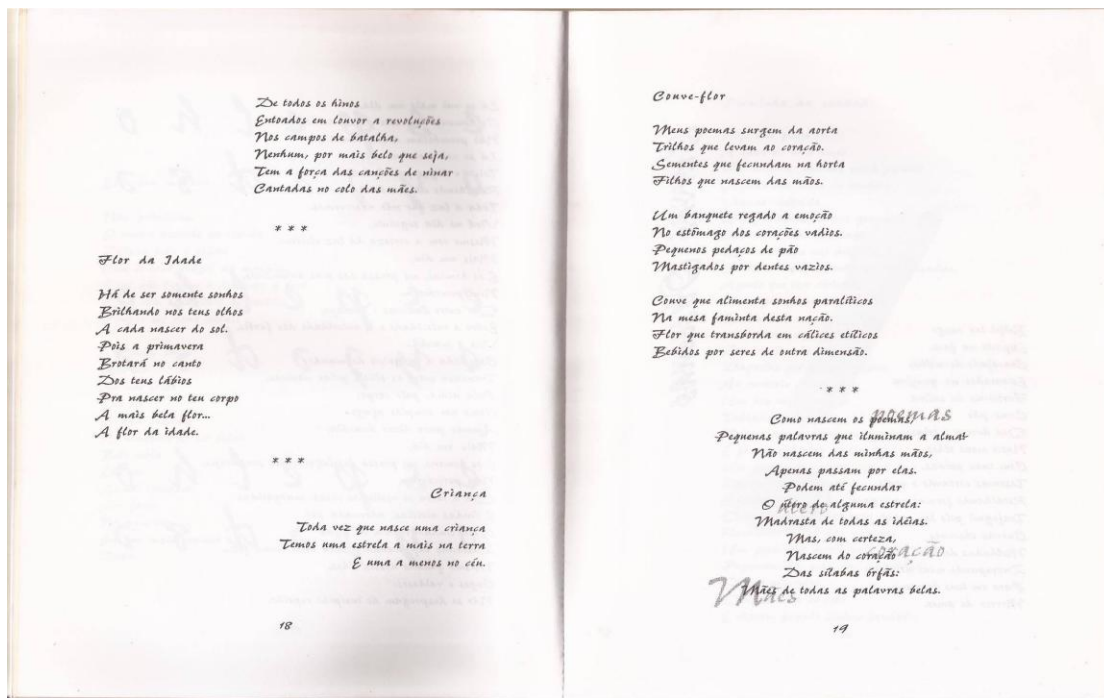 De todos os hinos
Entoados em louvor a revoluções
Nos campos de batalha,
Nenhum, por mais belo que seja,
Tem a força das canções de ninar
Cantadas no colo das mães.
* * *
Flor da Idade
Há de ser somente sonhos
Brilhando nos teus olhos
A cada nascer do sol.
Pois a primavera
Brotará no canto
Dos teus lábios
Pra nascer no teu corpo
A mais bela flor...
A flor da idade.
* * *
Criança
Toda vez que nasce uma criança
Temos uma estrela a mais na terra
E uma a menos no céu.
18
Couve-flor
Meus poemas surgem da aorta
Trilhos que levam ao coração.
Sementes que fecundam na horta
Filhos que nascem das mãos.
Um banquete regado a emoção
No estômago dos corações vadios.
Pequenos pedaços de pão
Mastigados por dentes vazios.
Couve que alimenta sonhos paralíticos
Na mesa faminta desta nação.
Flor que transborda em cálices etílicos
Bebidos por seres de outra dimensão.
* * *
Como nascem os poemas,
poemas
Pequenas palavras que iluminam a alma?
Não nascem das minhas mãos,
Apenas passam por elas.
Podem até fecundar
O útero de alguma estrela:
útero
Madrasta de todas as idéias.
Mas, com certeza,
Nascem do coração
coração
Das sílabas órfãs:
Mães de todas as palavras belas.
Mães
19